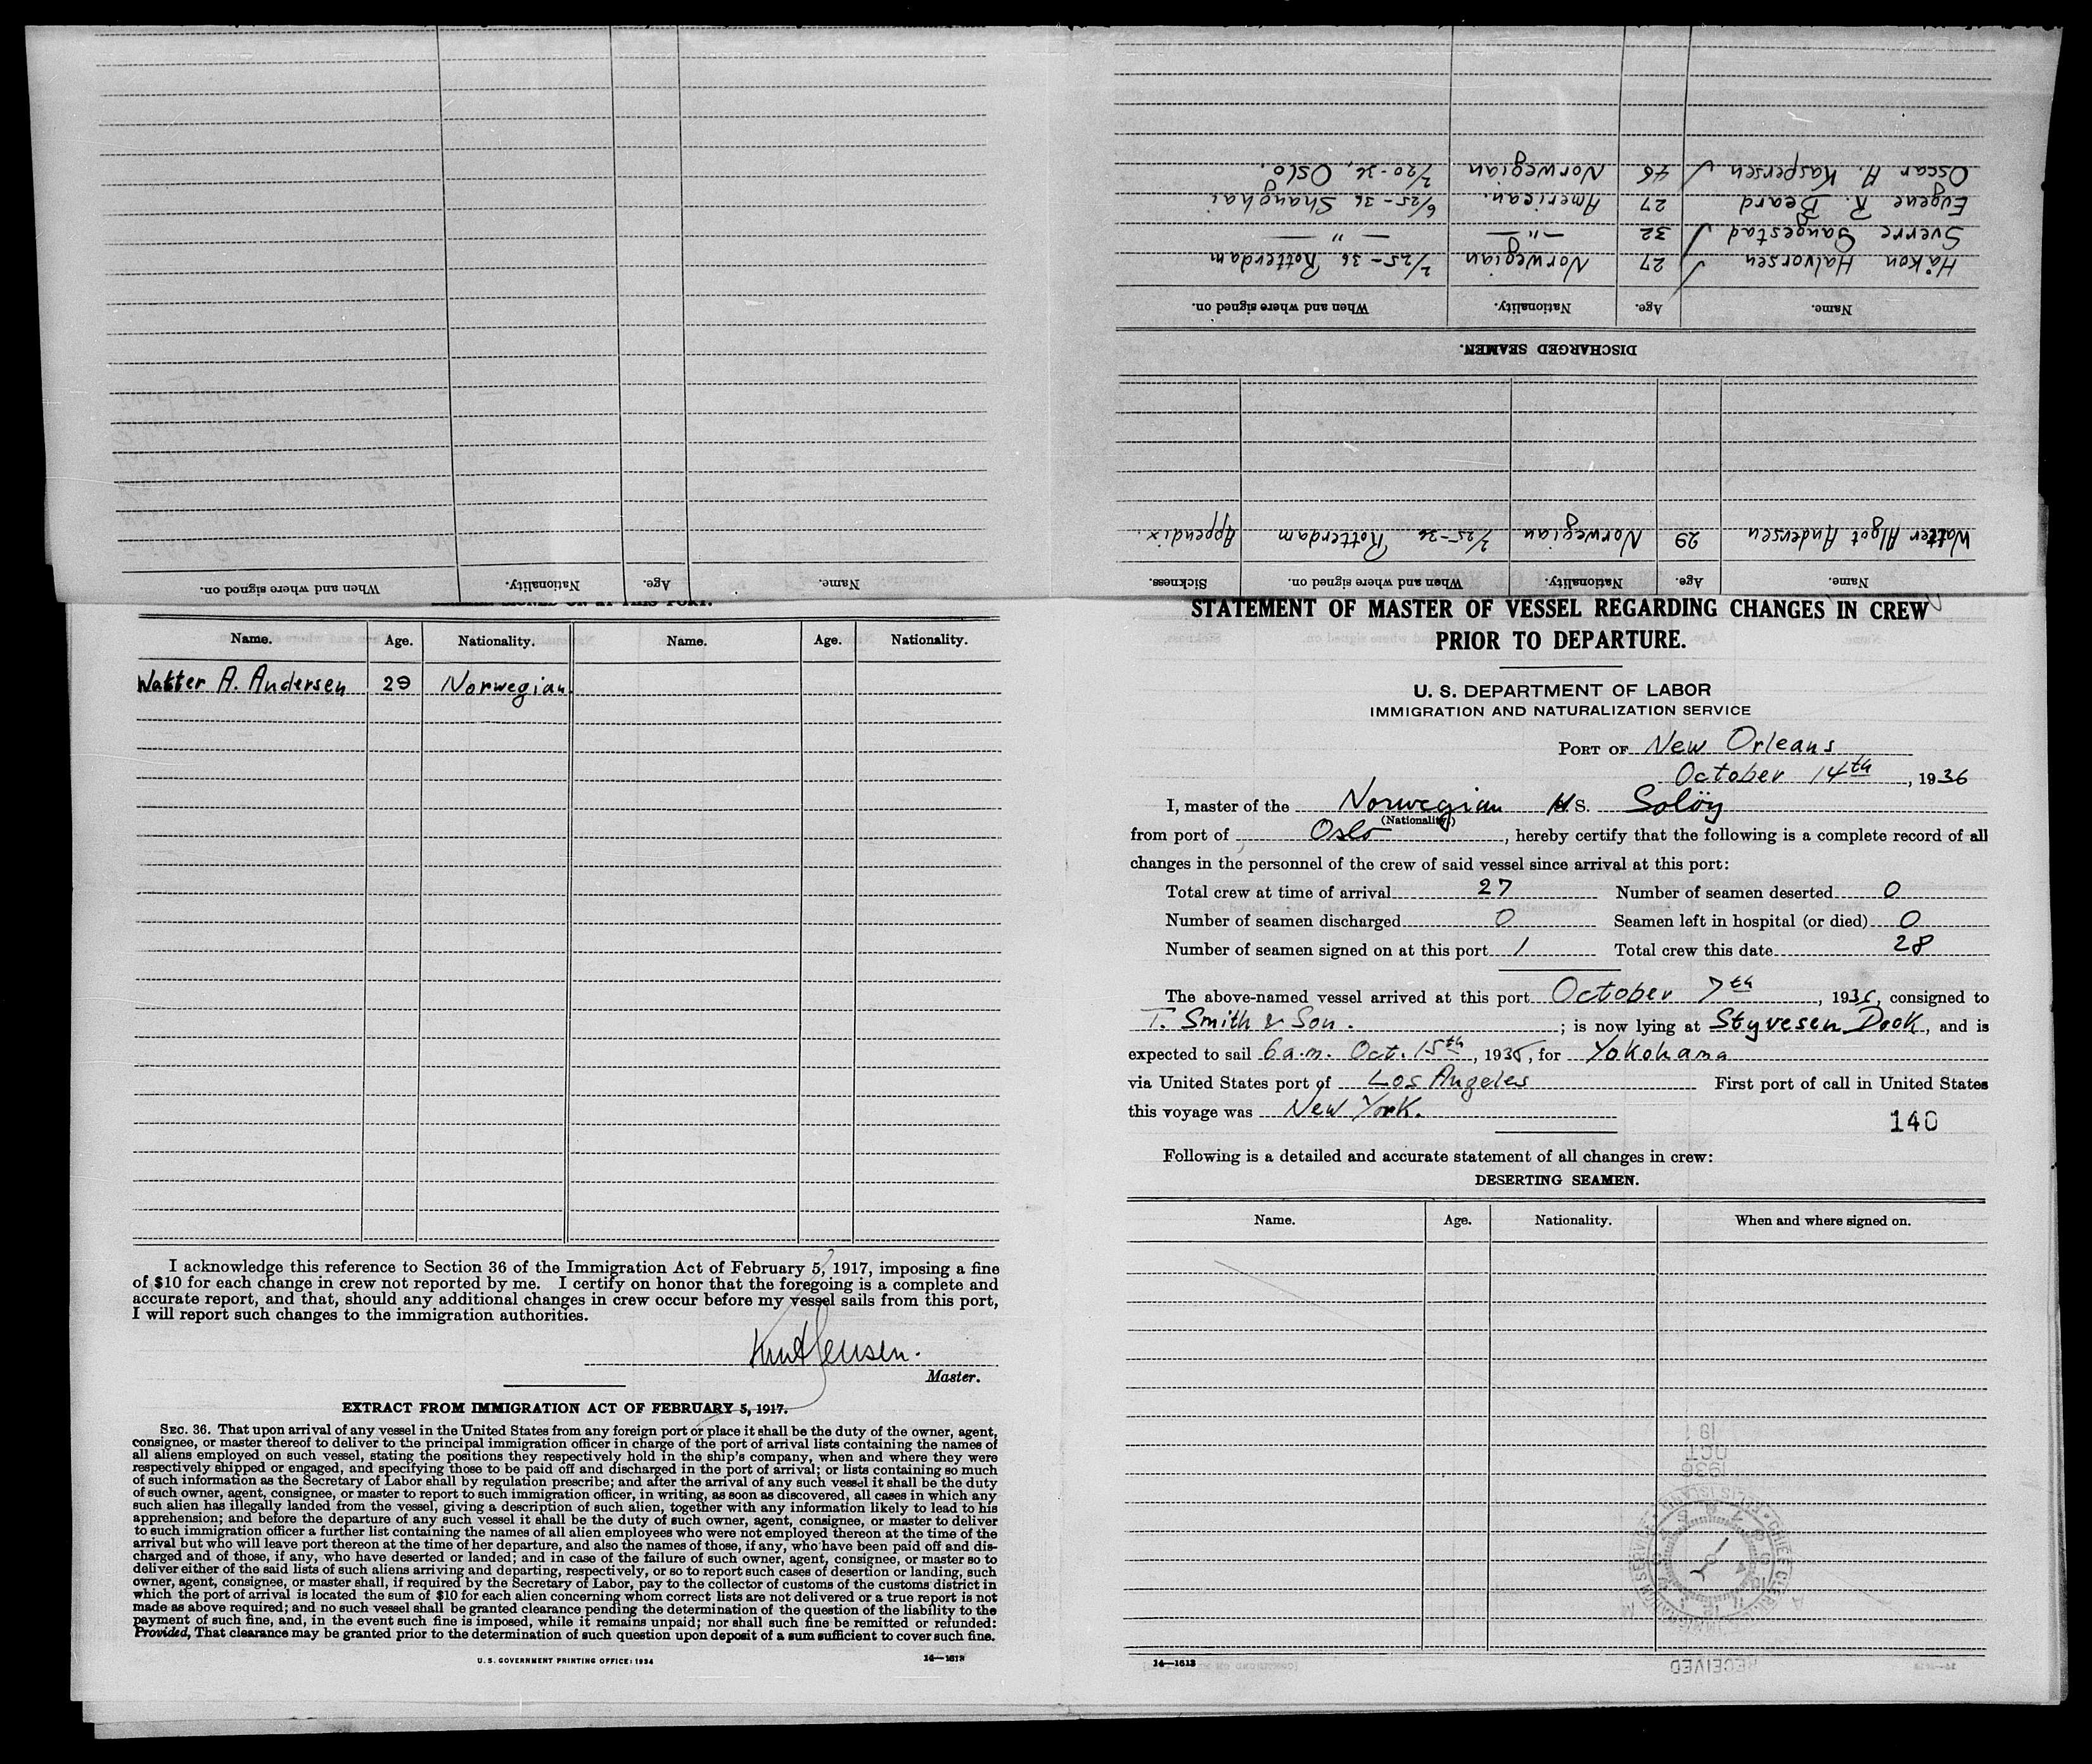 Name. Age. Nationality. When and where signed on.
Name. Age. Nationality. When and where signed on. Sickness.
Walter Algot Andersen 29 Norwegian 2/25-36 Rotterdam Appendix.
DISCHARGED SEAMEN.
Name. Age. Nationality. When and where signed on.
Håkon Halvorsen 27 Norwegian 2/25-36 Rotterdam
Sverre Saugestad 32 —"— —"—
Eugene R. Beard 27 American. 6/25-36 Shanghai
Oscar A. Kaspersen 46 Norwegian 2/20-36, Oslo.
Name. Age. Nationality. Name. Age. Nationality.
Walter A. Andersen 29 Norwegian
I acknowledge this reference to Section 36 of the Immigration Act of February 5, 1917, imposing a fine
of $10 for each change in crew not reported by me. I certify on honor that the foregoing is a complete and
accurate report, and that, should any additional changes in crew occur before my vessel sails from this port,
I will report such changes to the immigration authorities.
Knut Jensen.
Master.
EXTRACT FROM IMMIGRATION ACT OF FEBRUARY 5, 1917.
SEC. 36. That upon arrival of any vessel in the United States from any foreign port or place it shall be the duty of the owner, agent,
consignee, or master thereof to deliver to the principal immigration officer in charge of the port of arrival lists containing the names of
all aliens employed on such vessel, stating the positions they respectively hold in the ship's company, when and where they were
respectively shipped or engaged, and specifying those to be paid off and discharged in the port of arrival; or lists containing so much
of such information as the Secretary of Labor shall by regulation prescribe; and after the arrival of any such vessel it shall be the duty
of such owner, agent, consignee, or master to report to such immigration officer, in writing, as soon as discovered, all cases in which any
such alien has illegally landed from the vessel, giving a description of such alien, together with any information likely to lead to his
apprehension; and before the departure of any such vessel it shall be the duty of such owner, agent, consignee, or master to deliver
to such immigration officer a further list containing the names of all alien employees who were not employed thereon at the time of the
arrival but who will leave port thereon at the time of her departure, and also the names of those, if any, who have been paid off and dis-
charged and of those, if any, who have deserted or landed; and in case of the failure of such owner, agent, consignee, or master so to
deliver either of the said lists of such aliens arriving and departing, respectively, or so to report such cases of desertion or landing, such
owner, agent, consignee, or master shall, if required by the Secretary of Labor, pay to the collector of customs of the customs district in
which the port of arrival is located the sum of $10 for each alien concerning whom correct lists are not delivered or a true report is not
made as above required; and no such vessel shall be granted clearance pending the determination of the question of the liability to the
payment of such fine, and, in the event such fine is imposed, while it remains unpaid; nor shall such fine be remitted or refunded:
Provided, That clearance may be granted prior to the determination of such question upon deposit of a sum sufficient to cover such fine.
U. S. GOVERNMENT PRINTING OFFICE: 1934
14—1613
STATEMENT OF MASTER OF VESSEL REGARDING CHANGES IN CREW
PRIOR TO DEPARTURE.
U. S. DEPARTMENT OF LABOR
IMMIGRATION AND NATURALIZATION SERVICE
PORT OF New Orleans
October 14th, 1936
I, master of the Norwegian M.S. Solöy
(Nationality)
from port of Oslo, hereby certify that the following is a complete record of all
changes in the personnel of the crew of said vessel since arrival at this port:
Total crew at time of arrival 27 Number of seamen deserted 0
Number of seamen discharged 0 Seamen left in hospital (or died) 0
Number of seamen signed on at this port 1 Total crew this date 28
The above-named vessel arrived at this port October 7th, 1936, consigned to
T. Smith & Son. ; is now lying at Styvesen Dook, and is
expected to sail 6 a.m. Oct. 15th, 1936, for Yokohama
via United States port of Los Angeles First port of call in United States
this voyage was New York.
140
Following is a detailed and accurate statement of all changes in crew:
DESERTING SEAMEN.
Name. Age. Nationality. When and where signed on.
14—1613
RECEIVED